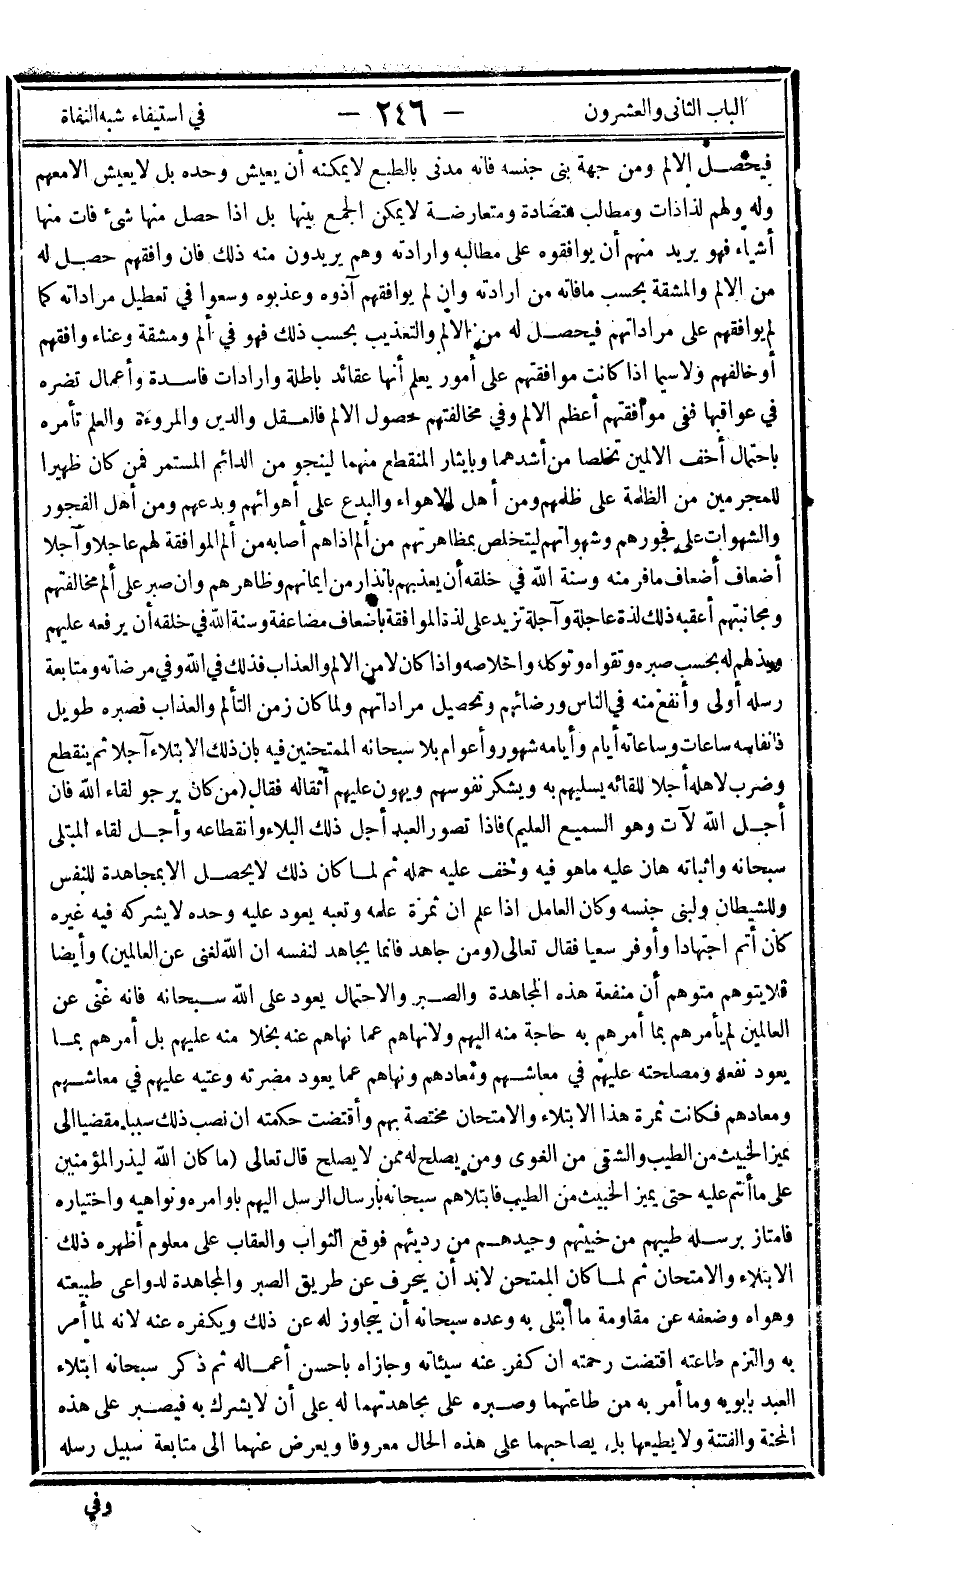 الباب الثانى والعشرون - ٢٤٦ - في استيفاء شبه النفاة
فيحصل الالم ومن جهة بنى جنسه فانه مدنى بالطبع لايمكنه أن يعيش وحده بل لايعيش الامعهم
وله ولهم لذاذات ومطالب متضادة ومتعارضة لايمكن الجمع بينها بل اذا حصل منها شئ فات منها
أشياء فهو يريد منهم أن يوافقوه على مطالبه وارادته وهم يريدون منه ذلك فان وافقهم حصل له
من الالم والمشقة بحسب مافاته من ارادته وان لم يوافقهم آذوه وعذبوه وسعوا في تعطيل مراداته كما
لم يوافقهم على مراداتهم فيحصل له من الالم والتعذيب بحسب ذلك فهو في ألم ومشقة وعناء وافقهم
أوخالفهم ولاسيما اذا كانت موافقتهم على أمور يعلم أنها عقائد باطلة وارادات فاسدة وأعمال تضره
في عواقبها ففى موافقتهم أعظم الالم وفي مخالفتهم حصول الالم فالعقل والدين والمروءة والعلم تأمره
باحتمال أخف الالمين تخلصا من أشدهما وبايثار المنقطع منهما لينجو من الدائم المستمر فمن كان ظهيرا
للمجرمين من الظلمة على ظلمهم ومن أهل الاهواء والبدع على أهوائهم وبدعهم ومن أهل الفجور
والشهوات على فجورهم وشهواتهم ليتخلص بمظاهرتهم من ألم اذاهم أصابه من ألم الموافقة لهم عاجلا وآجلا
أضعاف أضعاف مافر منه وسنة الله في خلقه أن يعذبهم بانذار من ايمانهم وظاهرهم وان صبر على ألم مخالفتهم
ومجانبتهم أعقبه ذلك لذة عاجلة وآجلة تزيد على لذة الموافقة بأضعاف مضاعفة وسنة الله في خلقه أن يرفعه عليهم
ويذلهم له بحسب صبره وتقواه وتوكله واخلاصه واذا كان لابد من الالم والعذاب فذلك في الله وفي مرضاته ومتابعة
رسله أولى وأنفع منه في الناس ورضائهم وتحصيل مراداتهم ولما كان زمن التألم والعذاب فصبره طويل
فانفاسه ساعات وساعاته أيام وأيامه شهور وأعوام بلا سبحانه الممتحنين فيه بان ذلك الابتلاء آجلا ثم ينقطع
وضرب لاهله أجلا للقائه يسليهم به ويشكر نفوسهم ويهون عليهم أثقاله فقال (من كان يرجو لقاء الله فان
أجل الله لآت وهو السميع العليم) فاذا تصور العبد أجل ذلك البلاء وانقطاعه وأجل لقاء المبتلى
سبحانه واثباته هان عليه ماهو فيه وخف عليه حمله ثم لما كان ذلك لايحصل الابمجاهدة للنفس
وللشيطان ولبنى جنسه وكان العامل اذا علم ان ثمرة علمه وتعبه يعود عليه وحده لايشركه فيه غيره
كان أتم اجتهادا وأوفر سعيا فقال تعالى (ومن جاهد فانما يجاهد لنفسه ان الله لغنى عن العالمين) وأيضا
فلايتوهم متوهم أن منفعة هذه المجاهدة والصبر والاحتمال يعود على الله سبحانه فانه غنى عن
العالمين لم يأمرهم بما أمرهم به حاجة منه اليهم ولانهاهم عما نهاهم عنه بخلا منه عليهم بل أمرهم بما
يعود نفعه ومصلحته عليهم في معاشهم ومعادهم ونهاهم عما يعود مضرته وعتبه عليهم في معاشهم
ومعادهم فكانت ثمرة هذا الابتلاء والامتحان مختصة بهم وأقتضت حكمته ان نصب ذلك سببا مفضيا الى
تميز الخبيث من الطيب والشقى من الغوى ومن يصلح له ممن لايصلح قال تعالى (ما كان الله ليذر المؤمنين
على ما أنتم عليه حتى يميز الخبيث من الطيب فابتلاهم سبحانه بأرسال الرسل اليهم باوامره ونواهيه واختياره
فامتاز برسله طيبهم من خبيثهم وجيدهم من رديئهم فوقع الثواب والعقاب على معلوم أظهره ذلك
الابتلاء والامتحان ثم لما كان الممتحن لابد أن ينحرف عن طريق الصبر والمجاهدة لدواعى طبيعته
وهواه وضعفه عن مقاومة ما أبتلى به وعده سبحانه أن يتجاوز له عن ذلك ويكفره عنه لانه لما أمر
به والتزم طاعته اقتضت رحمته ان كفر عنه سيئاته وجازاه باحسن أعماله ثم ذكر سبحانه ابتلاء
العبد بابويه وما أمر به من طاعتهما وصبره على مجاهدتهما له على أن لايشرك به فيصبر على هذه
المحنة والفتنة ولايطيعها بل يصاحبهما على هذه الحال معروفا ويعرض عنهما الى متابعة سبيل رسله
وفي